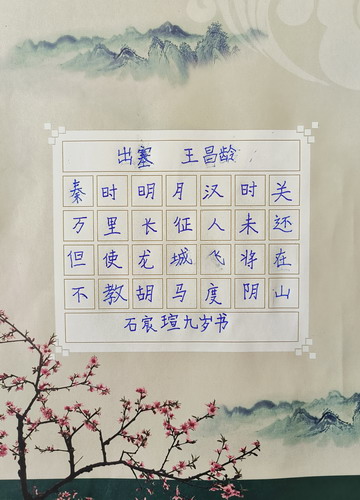 出塞 王昌龄
秦时明月汉时关
万里长征人未还
但使龙城飞将在
不教胡马度阴山
石家瑄九岁书